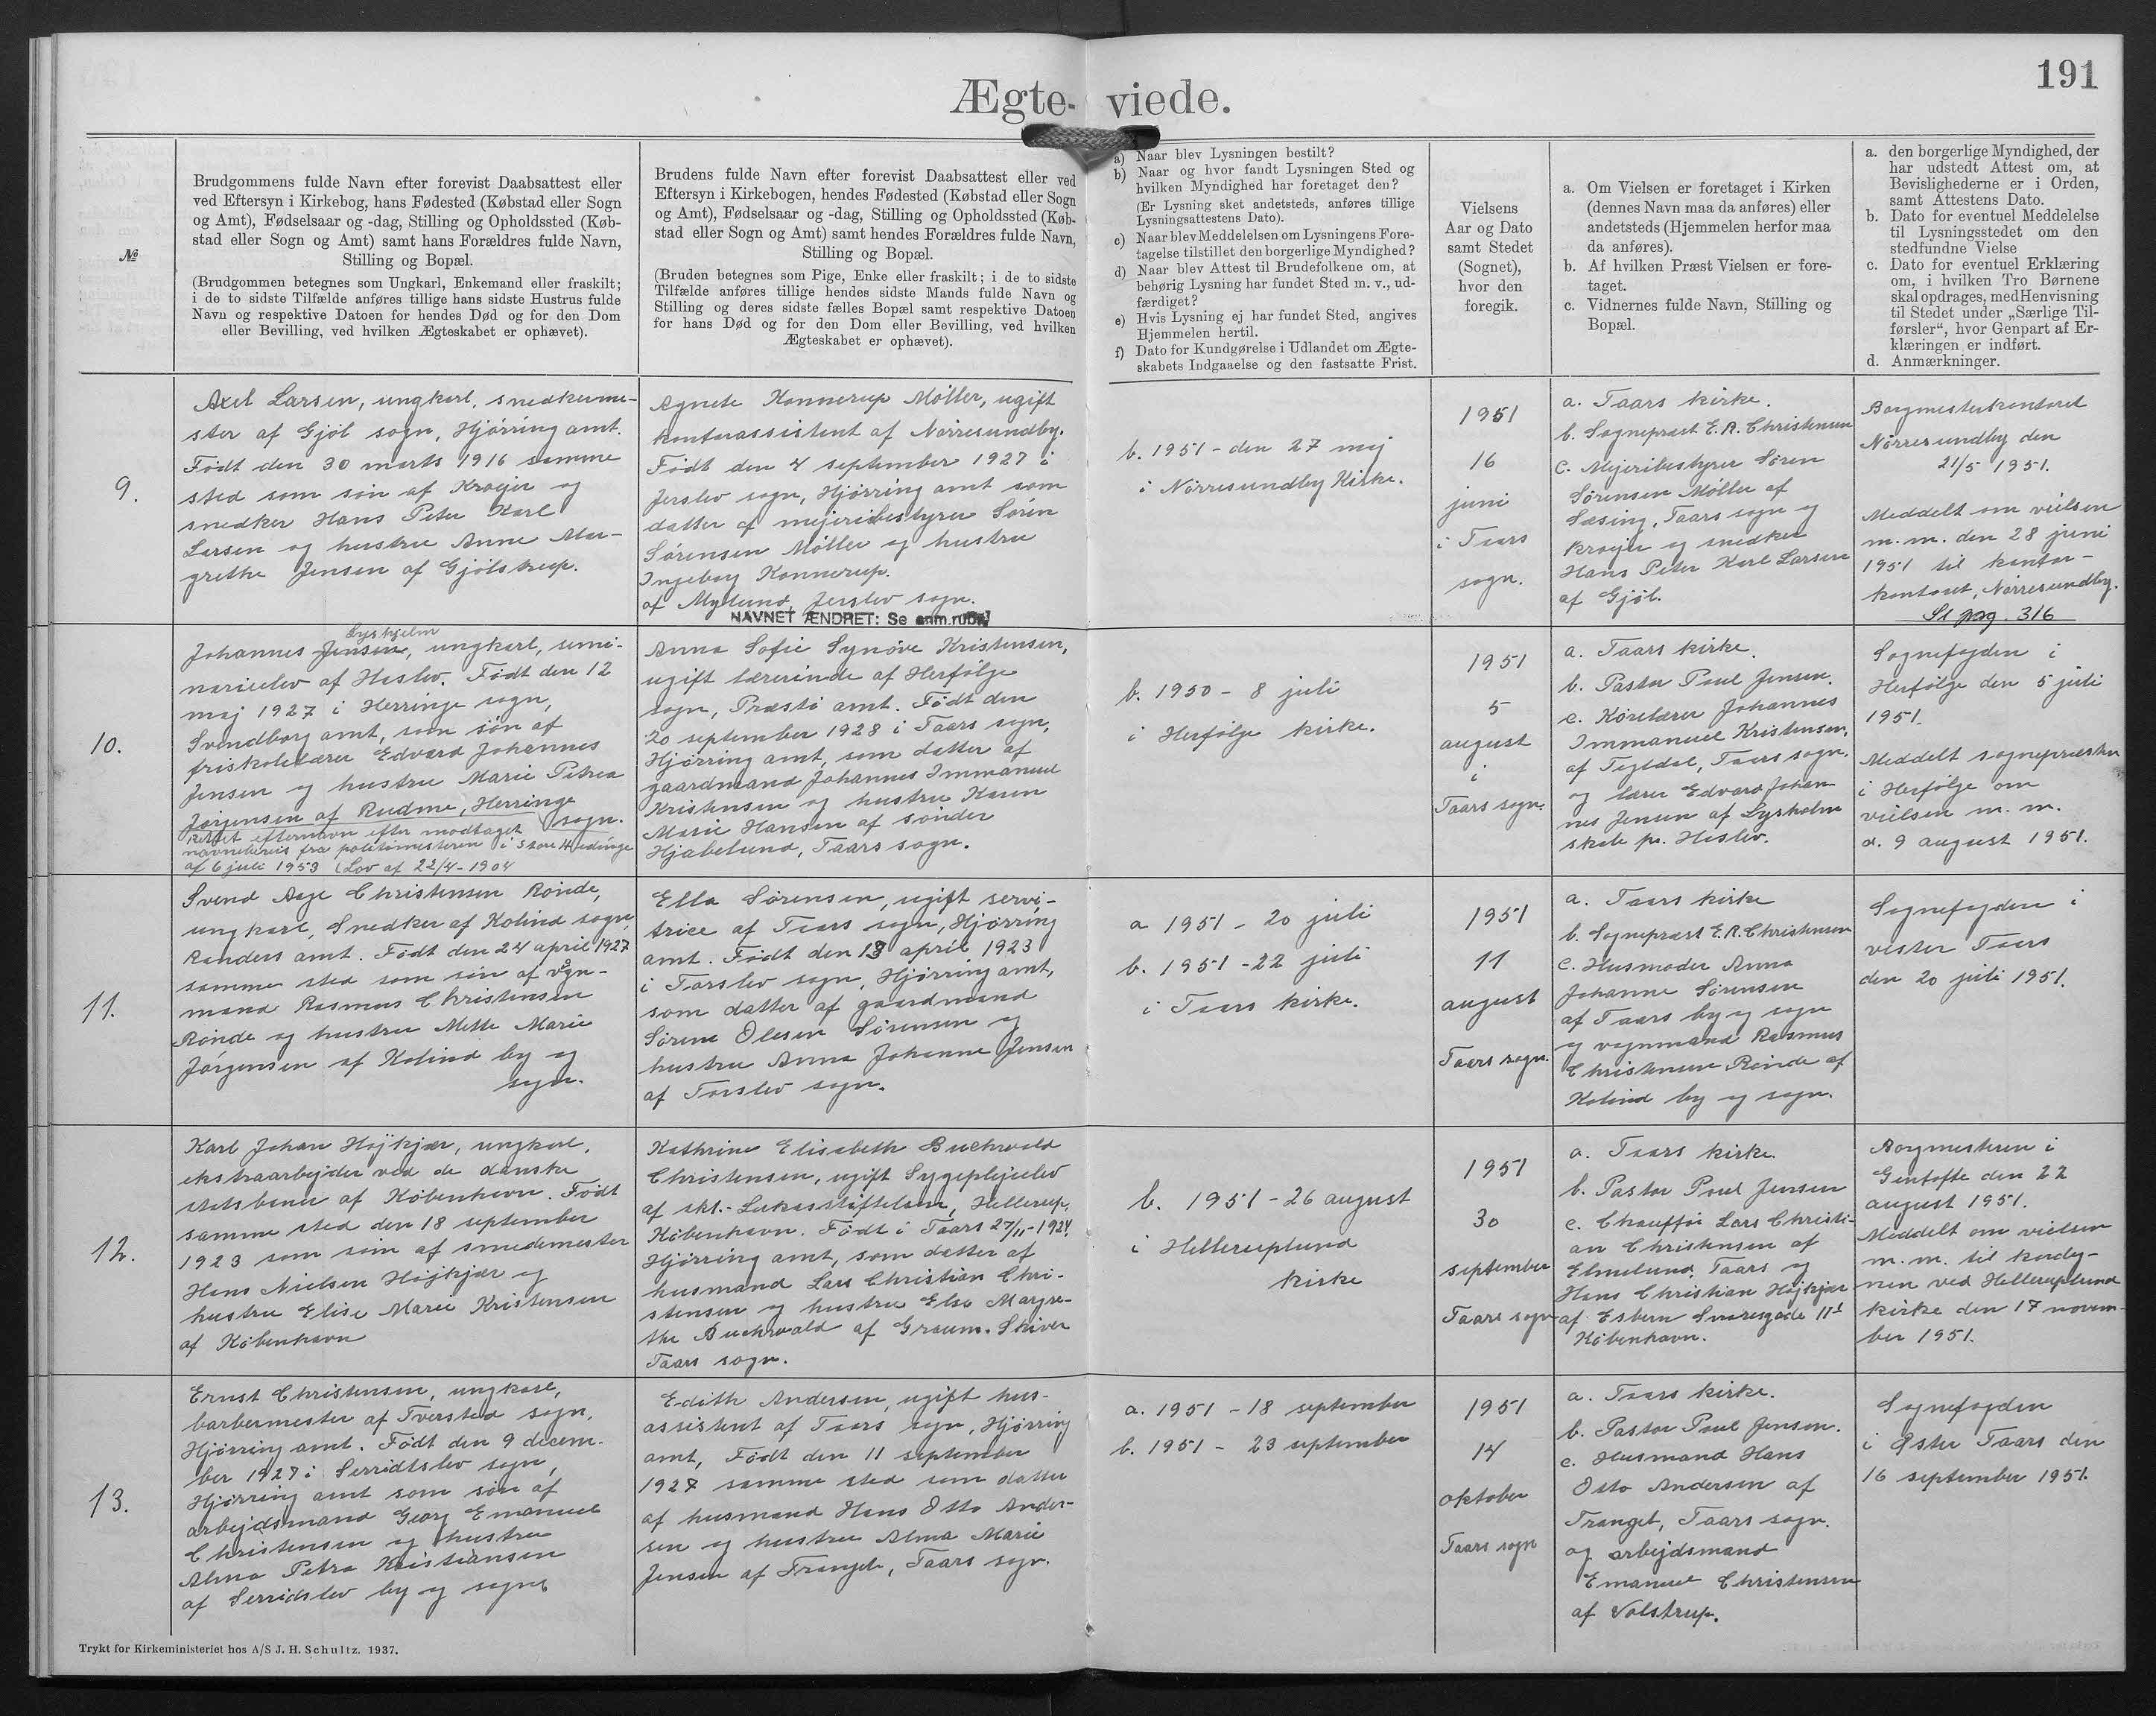 191
Ægte-viede.
№
Brudgommens fulde Navn efter forevist Daabsattest eller
ved Eftersyn i Kirkebog, hans Fødested (Købstad eller Sogn
og Amt), Fødselsaar og -dag, Stilling og Opholdssted (Køb-
stad eller Sogn og Amt) samt hans Forældres fulde Navn,
Stilling og Bopæl.
(Brudgommen betegnes som Ungkarl, Enkemand eller fraskilt;
i de to sidste Tilfælde anføres tillige hans sidste Hustrus fulde
Navn og respektive Datoen for hendes Død og for den Dom
eller Bevilling, ved hvilken Ægteskabet er ophævet).
Brudens fulde Navn efter forevist Daabsattest eller ved
Eftersyn i Kirkebogen, hendes Fødested (Købstad eller Sogn
og Amt), Fødselsaar og -dag, Stilling og Opholdssted (Køb-
stad eller Sogn og Amt) samt hendes Forældres fulde Navn,
Stilling og Bopæl.
(Bruden betegnes som Pige, Enke eller fraskilt; i de to sidste
Tilfælde anføres tillige hendes sidste Mands fulde Navn og
Stilling og deres sidste fælles Bopæl samt respektive Datoen
for hans Død og for den Dom eller Bevilling, ved hvilken
Ægteskabet er ophævet).
a) Naar blev Lysningen bestilt?
b) Naar og hvor fandt Lysningen Sted og
hvilken Myndighed har foretaget den?
(Er Lysning sket andetsteds, anføres tillige
Lysningsattestens Dato).
c) Naar blev Meddelelsen om Lysningens Fore-
tagelse tilstillet den borgerlige Myndighed?
d) Naar blev Attest til Brudefolkene om, at
behørig Lysning har fundet Sted m. v., ud-
færdiget?
e) Hvis Lysning ej har fundet Sted, angives
Hjemmelen hertil.
f) Dato for Kundgørelse i Udlandet om Ægte-
skabets Indgaaelse og den fastsatte Frist.
Vielsens
Aar og Dato
samt Stedet
(Sognet),
hvor den
foregik.
a. Om Vielsen er foretaget i Kirken
(dennes Navn maa da anføres) eller
andetsteds (Hjemmelen herfor maa
da anføres).
b. Af hvilken Præst Vielsen er fore-
taget.
c. Vidnernes fulde Navn, Stilling og
Bopæl.
a. den borgerlige Myndighed, der
har udstedt Attest om, at
Bevislighederne er i Orden,
samt Attestens Dato.
b. Dato for eventuel Meddelelse
til Lysningsstedet om den
stedfundne Vielse
c. Dato for eventuel Erklæring
om, i hvilken Tro Børnene
skal opdrages, med Henvisning
til Stedet under „Særlige Til-
førsler“, hvor Genpart af Er-
klæringen er indført.
d. Anmærkninger.
9.
Axel Larsen, ungkarl, snedkerme-
ster af Gjøl sogn, Hjørring amt.
Født den 30 marts 1916 samme
sted som søn af Kroejer og
snedker Hans Peter Karl
Larsen og hustru Anne Mar-
grethe Jensen af Gjølstrup.
Agnete Konnerup Møller, ugift
kontorassistent af Nørresundby.
Født den 4 september 1927 i
Jerslev sogn, Hjørring amt som
datter af mejeribestyrer Søren
Sørensen Møller og hustru
Ingeborg Konnerup.
af Mylund Jerslev sogn.
b. 1951 - den 27 maj
i Nørresundby Kirke.
1951
16
juni
i Taars
sogn.
a. Taars kirke.
b. Sognepræst E. R. Christensen
c. Mejeribestyrer Søren
Sørensen Møller af
Sæsing, Taars sogn og
Kroejer og snedker
Hans Peter Karl Larsen
af Gjøl.
Borgmesterkontoret
Nørresundby den
21/5 1951.
Meddelt om vielsen
m.m. den 28 juni
1951 til kantor-
kontoret, Nørresundby.
NAVNET ÆNDRET: Se anm.rubr.
Se pag. 316
10.
Lysholm
Johannes Jensen, ungkarl, semi-
narieelev af Haslev. Født den 12
maj 1927 i Herringe sogn,
Svendborg amt, som søn af
friskolelærer Edvard Johannes
Jensen og hustru Marie Petrea
Jørgensen af Rudme, Herringe
sogn.
Rettet efternavn efter modtaget
navnebevis fra politimesteren i Store Hedinge
af 6 juli 1953 (Lov af 22/4-1904
Anna Sofie Synøve Kristensen,
ugift lærerinde af Herfølge
sogn, Præstø amt. Født den
20 september 1928 i Taars sogn,
Hjørring amt, som datter af
gaardmand Johannes Immanuel
Kristensen og hustru Karen
Marie Hansen af sønder
Hjabelund, Taars sogn.
b. 1950 - 8 juli
i Herfølge kirke.
1951
5
august
i
Taars sogn.
a. Taars kirke.
b. Pastor Poul Jensen.
c. Kørelærer Johannes
Immanuel Kristensen,
af Tegldal, Taars sogn.
og lærer Edvard Johan
nes Jensen af Lysholm
skole pr. Haslev.
Sognefogden i
Herfølge den 5 juli
1951.
Meddelt sognepræsten
i Herfølge om
vielsen m. m.
d. 9 august 1951.
11.
Svend Aage Christensen Rønde,
ungkarl, Snedker af Kolind sogn,
Randers amt. Født den 24 april 1927
samme sted som søn af vogn-
mand Rasmus Christensen
Rønde og hustru Mette Marie
Jørgensen af Kolind by og
sogn.
Ella Sørensen, ugift servi-
trice af Taars sogn, Hjørring
amt. Født den 13 april 1923
i Torslev sogn, Hjørring amt,
som datter af gaardmand
Sørene Olesen Sørensen og
hustru Anna Johanne Jensen
af Torslev sogn.
a 1951 - 20 juli
b. 1951 - 22 juli
i Taars kirke.
1951
11
august
Taars sogn.
a. Taars kirke
b. Sognepræst E. R. Christensen
c. Husmoder Anna
Johanne Sørensen
af Taars by og sogn
og vognmand Rasmus
Christensen Rønde af
Kolind by og sogn.
Sognefogden i
vester Taars
den 20 juli 1951.
12.
Karl Johan Højkjær, ungkarl,
ekstraarbejder ved de danske
statsbaner af København. Født
samme sted den 18 september
1923 som søn af smedemester
Hans Nielsen Højkjær og
hustru Elise Marie Kristensen
af København
Kathrine Elisabeth Buchwald
Christensen, ugift Sygeplejeelev
af skt.- Lukasstiftelsen, Hellerup,
København. Født i Taars 27/11-1924,
Hjørring amt, som datter af
husmand Lars Christian Chri-
stensen og hustru Else Margre-
the Buchwald af Graum. Skiver
Taars sogn.
b. 1951 - 26 august
i Hellerup­lund
kirke
1951
30
september
Taars sogn
a. Taars kirke.
b. Pastor Poul Jensen
c. Chauffør Lars Christi-
an Christensen af
Elmelund, Taars og
Hans Christian Højkjær
af Esbern Snaresgade 11¹
København.
Borgmesteren i
Gentofte den 22
august 1951.
Meddelt om vielsen
m.m. til kordeg-
nen ved Helleruplund
kirke den 17 novem-
ber 1951.
13.
Ernst Christensen, ungkarl,
barbermester af Tversted sogn,
Hjørring amt. Født den 9 decem-
ber 1927 i Serridtslev sogn,
Hjørring amt som søn af
arbejdsmand Georg Emanuel
Christensen og hustru
Alma Petra Kristiansen
af Serridslev by og sogn
Edith Andersen, ugift hus-
assistent af Taars sogn, Hjørring
amt, Født den 11 september
1927 samme sted som datter
af husmand Hans Otto Ander-
sen og hustru Alma Marie
Jensen af Tranget, Taars sogn.
a. 1951 - 18 september
b. 1951 - 23 september
1951
14
oktober
Taars sogn
a. Taars kirke.
b. Pastor Poul Jensen.
c. Husmand Hans
Otto Andersen af
Tranget, Taars sogn.
og arbejdsmand
Emanuel Christensen
af Volstrup.
Sognefogden
i Øster Taars den
16 september 1951.
Trykt for Kirkeministeriet hos A/S J. H. Schultz. 1937.